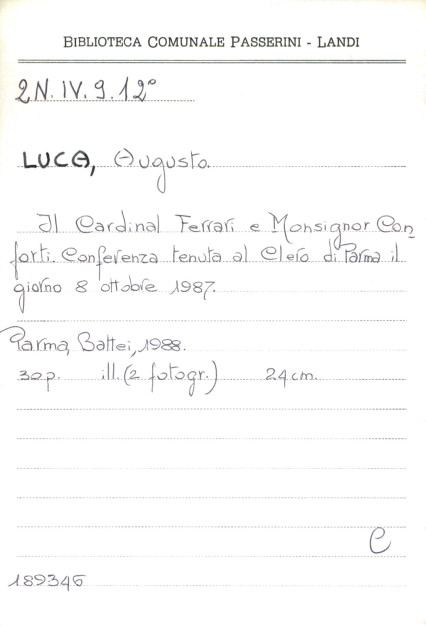 BIBLIOTECA COMUNALE PASSERINI - LANDI
2N.IV.9.12°
LUCA, Augusto.
Il Cardinal Ferrari e Monsignor Con
forti. Conferenza tenuta al Clero di Parma il
giorno 8 ottobre 1987.
Parma, Battei, 1988.
30p. ill. (2 fotogr.) 24 cm.
C
189346